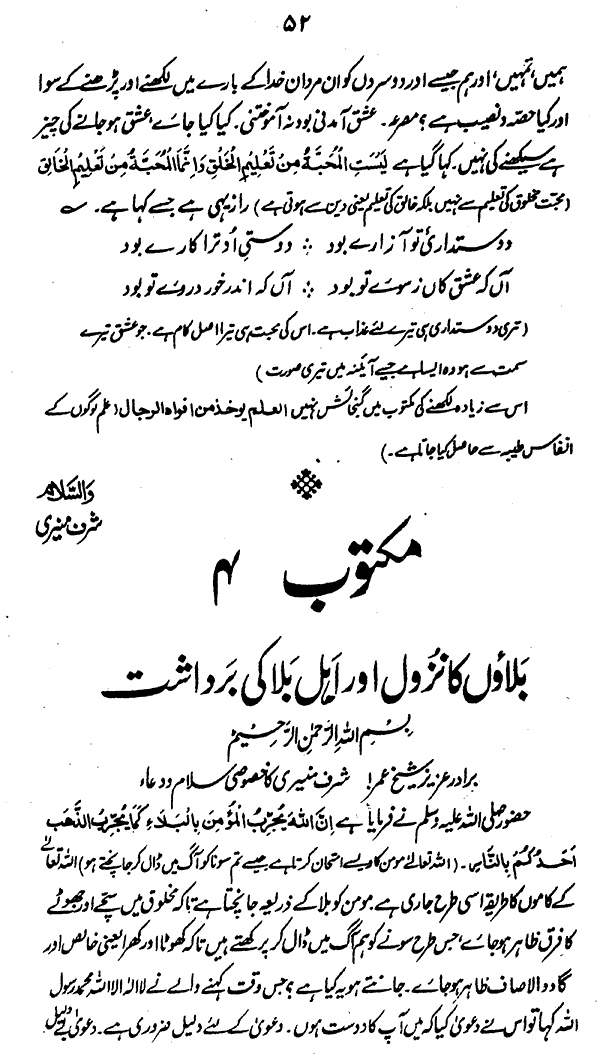 ۵۲
ہمیں، تمہیں، اور ہم جیسے اور دوسروں کو ان مردانِ خدا کے بارے میں لکھنے اور پڑھنے کے سوا
اور کیا حصہ و نصیب ہے؟ مصرعہ۔ عشق آمدنی بود نہ آموختنی۔ کیا کیا جائے، عشق ہو جانے کی چیز
ہے سیکھنے کی نہیں۔ کہا گیا ہے لَیْسَتِ الْمُحَبَّةُ مِنْ تَعْلِیْمِ الْخَلْقِ وَاِنَّمَا الْمُحَبَّةُ مِنْ تَعْلِیْمِ الْخَالِقِ
(محبت مخلوق کی تعلیم سے نہیں بلکہ خالق کی تعلیم یعنی دین سے ہوتی ہے) راز یہی ہے جسے کہا ہے۔ ؎
دوستداریٔ تو آزارے بود ⁘ دوستیِ او ترا کارے بود
آں کہ عشق کاں ز سوئے تو بود ⁘ آں کہ اندر خور دروئے تو بود
(تری دوستداری ہی تیرے لئے عذاب ہے۔ اس کی محبت ہی تیرا اصل کام ہے۔ جو عشق تیرے
سمت سے ہو وہ ایسا ہے جیسے آئینہ میں تیری صورت)
اس سے زیادہ لکھنے کی مکتوب میں گنجائش نہیں العلم یوخذ من افواہ الرجال (علم لوگوں کے
انفاس طیبہ سے حاصل کیا جاتا ہے۔)
والسّلام
شرف منیری
مکتوب ۴
بَلاؤں کا نزُول اور اَہلِ بَلا کی بَرداشت
بِسْمِ اللہِ الرَّحْمٰنِ الرَّحِیْمِ
برادر عزیز شیخ عمر! شرف منیری کا خصوصی سلام و دعاء
حضور صلی اللہ علیہ وسلم نے فرمایا ہے اِنَّ اللہَ یُجَرِّبُ الْمُؤْمِنَ بِالْبَلَاءِ کَمَا یُجَرِّبُ الذَّھَبَ
اَحَدُکُمْ بِالنَّاسِ۔ (اللہ تعالےٰ مومن کا ویسے امتحان کرتا ہے جیسے تم سونا کو آگ میں ڈال کر جانچتے ہو) اللہ تعالےٰ
کے کاموں کا طریقہ اسی طرح جاری ہے۔ مومن کو بلا کے ذریعہ جانچتا ہے تاکہ مخلوق میں سچے اور جھوٹے
کا فرق ظاہر ہو جائے، جس طرح سونے کو ہم آگ میں ڈال کر پرکھتے ہیں تاکہ کھوٹا اور کھرا یعنی خالص اور
گاد والا صاف ظاہر ہو جائے۔ جانتے ہو یہ کیا ہے؟ جس وقت کہنے والے نے لا الہ الا اللہ محمد رسول
اللہ کہا تو اس نے دعویٰ کیا کہ میں آپ کا دوست ہوں۔ دعویٰ کے لئے دلیل ضروری ہے۔ دعویٰ بے دلیل